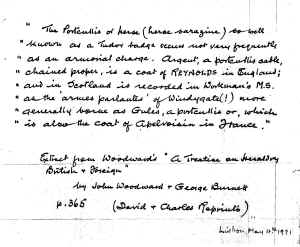 " The Portcullis or herse (herse sarazine) so well
" known as a Tudor badge occurs not very frequently
" as an armorial charge. Argent, a portcullis sable,
" chained proper, is a coat of REYNOLDS in England;
" and in Scotland is recorded in Workman's M.S.
" as the armes parlantes of Windygate(!) more
" generally borne as Gules, a portcullis or, which
" is also the coat of in France."
Extract from Woodward's "A Treatise on Heraldry
British & Foreign"
by John Woodward & George Burnett
p. 365 (David & Charles Reprints)
May 11th 1971